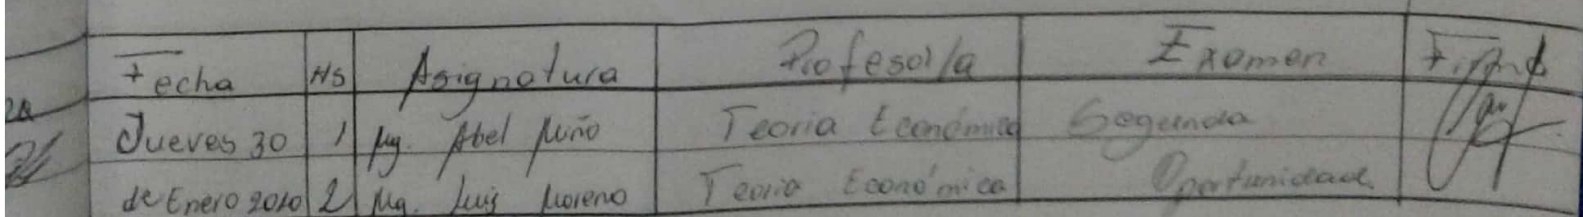 Fecha HS Asignatura Profesor/a Examen Firma
Jueves 30 1 Mg. Abel Miño Teoria Económica Segunda
de Enero 2020 2 Mg. Luis Moreno Teoria Económica Oportunidad